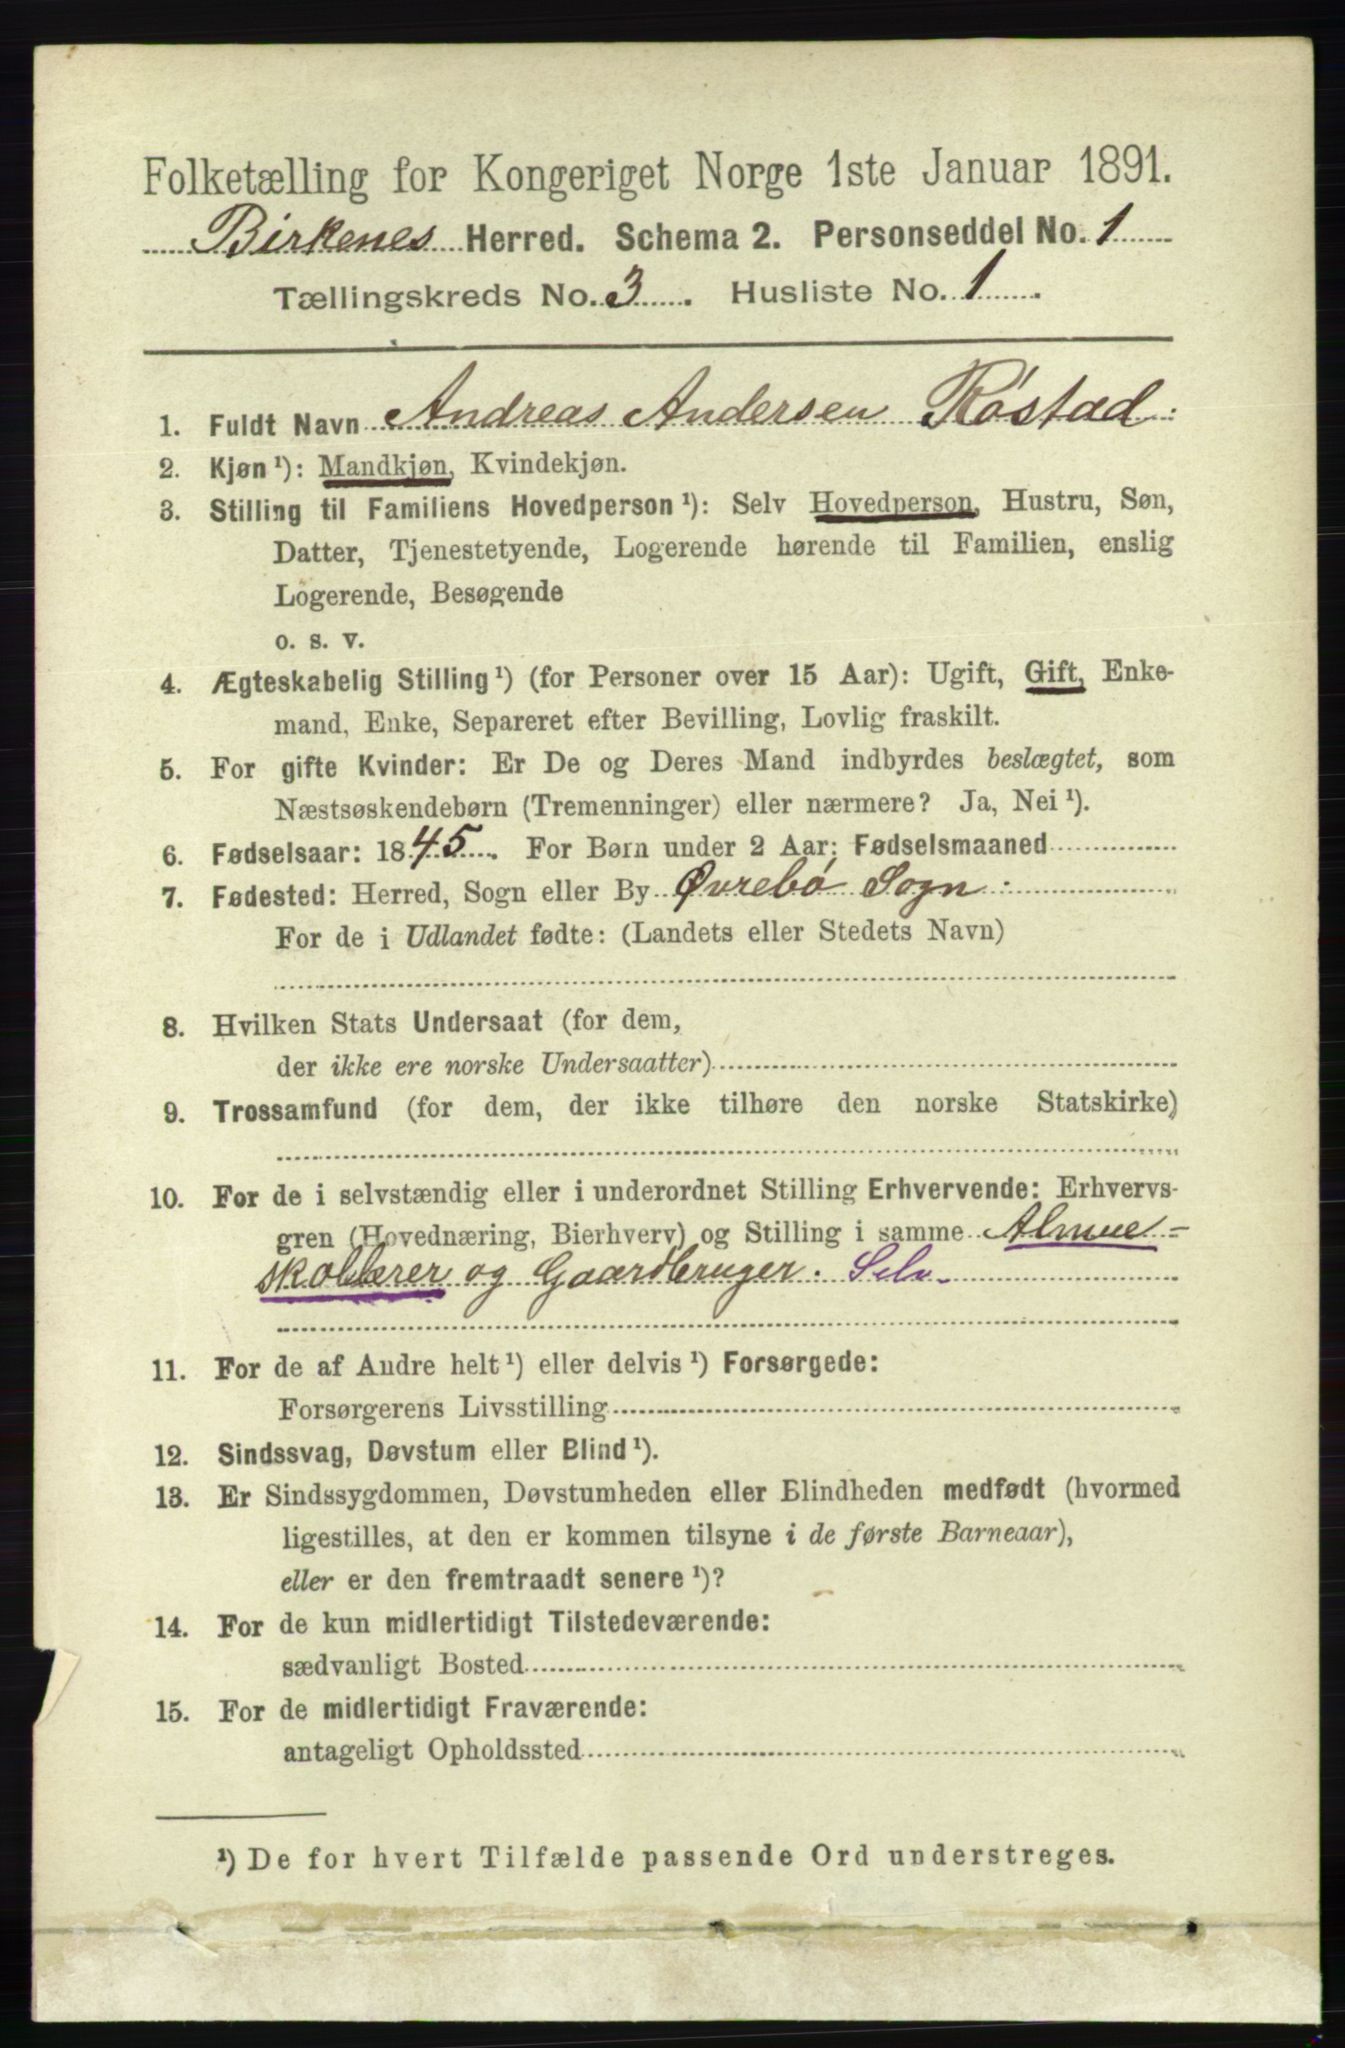 Folketælling for Kongeriget Norge 1ste Januar 1891.
Birkenes Herred. Schema 2. Personseddel No. 1
Tællingskreds No. 3. Husliste No. 1.
1. Fuldt Navn Andreas Andersen Røstad.
2. Kjøn¹): Mandkjøn, Kvindekjøn.
3. Stilling til Familiens Hovedperson¹): Selv Hovedperson, Hustru, Søn,
Datter, Tjenestetyende, Logerende hørende til Familien, enslig
Logerende, Besøgende
o. s. v.
4. Ægteskabelig Stilling¹) (for Personer over 15 Aar): Ugift, Gift, Enke-
mand, Enke, Separeret efter Bevilling, Lovlig fraskilt.
5. For gifte Kvinder: Er De og Deres Mand indbyrdes beslægtet, som
Næstsøskendebørn (Tremenninger) eller nærmere? Ja, Nei¹).
6. Fødselsaar: 1845. For Børn under 2 Aar: Fødselsmaaned
7. Fødested: Herred, Sogn eller By Øvrebø Sogn.
For de i Udlandet fødte: (Landets eller Stedets Navn)
8. Hvilken Stats Undersaat (for dem,
der ikke ere norske Undersaatter)
9. Trossamfund (for dem, der ikke tilhøre den norske Statskirke)
10. For de i selvstændig eller i underordnet Stilling Erhvervende: Erhvervs-
gren (Hovednæring, Bierhverv) og Stilling i samme Almue-
skollærer og Gaardbruger. Selv.
11. For de af Andre helt¹) eller delvis¹) Forsørgede:
Forsørgerens Livsstilling
12. Sindssvag, Døvstum eller Blind¹).
13. Er Sindssygdommen, Døvstumheden eller Blindheden medfødt (hvormed
ligestilles, at den er kommen tilsyne i de første Barneaar),
eller er den fremtraadt senere¹)?
14. For de kun midlertidigt Tilstedeværende:
sædvanligt Bosted
15. For de midlertidigt Fraværende:
antageligt Opholdssted
¹) De for hvert Tilfælde passende Ord understreges.